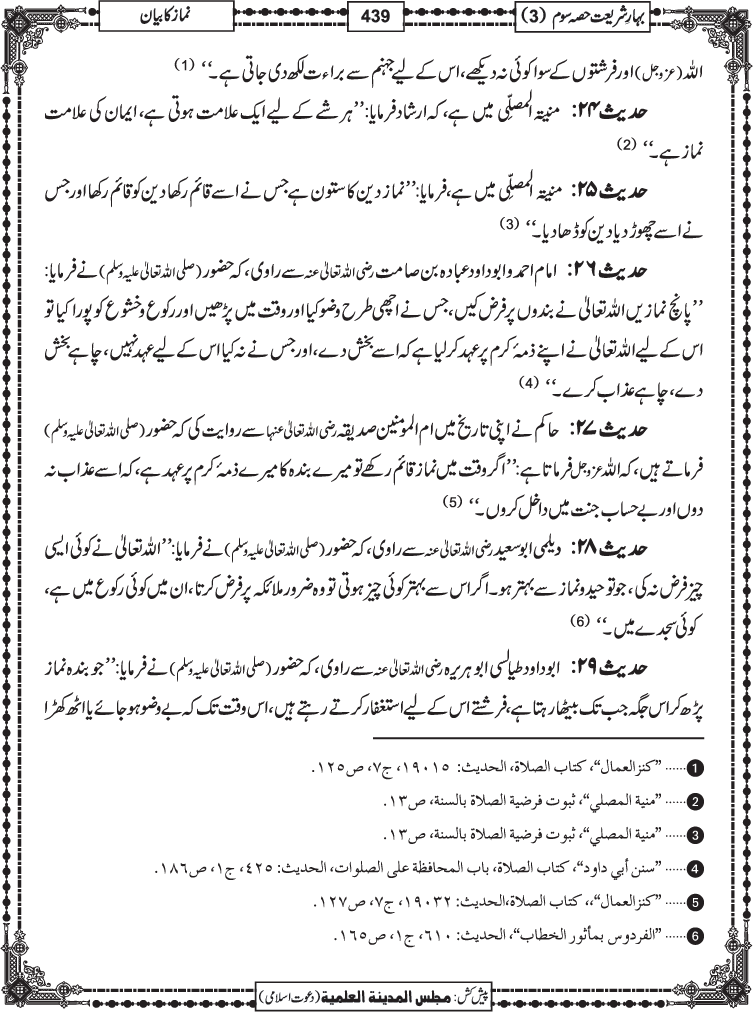 بہارِ شریعت حصہ سوم (3)
439
نماز کا بیان
اللہ (عزوجل) اور فرشتوں کے سوا کوئی نہ دیکھے، اس کے لیے جہنم سے براءت لکھ دی جاتی ہے۔‘‘ (1)
حدیث ۲۴: منیۃ المصلّی میں ہے، کہ ارشاد فرمایا: ’’ہر شے کے لیے ایک علامت ہوتی ہے، ایمان کی علامت
نماز ہے۔‘‘ (2)
حدیث ۲۵: منیۃ المصلّی میں ہے، فرمایا: ’’نماز دین کا ستون ہے جس نے اسے قائم رکھا دین کو قائم رکھا اور جس
نے اسے چھوڑ دیا دین کو ڈھا دیا۔‘‘ (3)
حدیث ۲۶: امام احمد و ابو داود عبادہ بن صامت رضی اللہ تعالیٰ عنہ سے راوی، کہ حضور (صلی اللہ تعالیٰ علیہ وسلم) نے فرمایا:
’’پانچ نمازیں اللہ تعالیٰ نے بندوں پر فرض کیں، جس نے اچھی طرح وضو کیا اور وقت میں پڑھیں اور رکوع و خشوع کو پورا کیا تو
اس کے لیے اللہ تعالیٰ نے اپنے ذمۂ کرم پر عہد کر لیا ہے کہ اسے بخش دے، اور جس نے نہ کیا اس کے لیے عہد نہیں، چاہے بخش
دے، چاہے عذاب کرے۔‘‘ (4)
حدیث ۲۷: حاکم نے اپنی تاریخ میں ام المومنین صدیقہ رضی اللہ تعالیٰ عنہا سے روایت کی کہ حضور (صلی اللہ تعالیٰ علیہ وسلم)
فرماتے ہیں، کہ اللہ عزوجل فرماتا ہے: ’’اگر وقت میں نماز قائم رکھے تو میرے بندہ کا میرے ذمۂ کرم پر عہد ہے، کہ اسے عذاب نہ
دوں اور بے حساب جنت میں داخل کروں۔‘‘ (5)
حدیث ۲۸: دیلمی ابو سعید رضی اللہ تعالیٰ عنہ سے راوی، کہ حضور (صلی اللہ تعالیٰ علیہ وسلم) نے فرمایا: ’’اللہ تعالیٰ نے کوئی ایسی
چیز فرض نہ کی، جو توحید و نماز سے بہتر ہو۔ اگر اس سے بہتر کوئی چیز ہوتی تو وہ ضرور ملائکہ پر فرض کرتا، ان میں کوئی رکوع میں ہے،
کوئی سجدے میں۔‘‘ (6)
حدیث ۲۹: ابو داود طیالسی ابو ہریرہ رضی اللہ تعالیٰ عنہ سے راوی، کہ حضور (صلی اللہ تعالیٰ علیہ وسلم) نے فرمایا: ’’جو بندہ نماز
پڑھ کر اس جگہ جب تک بیٹھا رہتا ہے، فرشتے اس کے لیے استغفار کرتے رہتے ہیں، اس وقت تک کہ بے وضو ہو جائے یا اٹھ کھڑا
1 ...... ’’كنزالعمال‘‘، كتاب الصلاة، الحديث: ۱۹۰۱۵، ج۷، ص۱۲۵.
2 ...... ’’منية المصلي‘‘، ثبوت فرضية الصلاة بالسنة، ص۱۳.
3 ...... ’’منية المصلي‘‘، ثبوت فرضية الصلاة بالسنة، ص۱۳.
4 ...... ’’سنن أبي داود‘‘، كتاب الصلاة، باب المحافظة على الصلوات، الحديث: ۴۲۵، ج۱، ص۱۸۶.
5 ...... ’’كنزالعمال‘‘،، كتاب الصلاة،الحديث: ۱۹۰۳۲، ج۷، ص۱۲۷.
6 ...... ’’الفردوس بمأثور الخطاب‘‘، الحديث: ۶۱۰، ج۱، ص۱۶۵.
پیش کش: مجلس المدینة العلمیة (دعوت اسلامی)